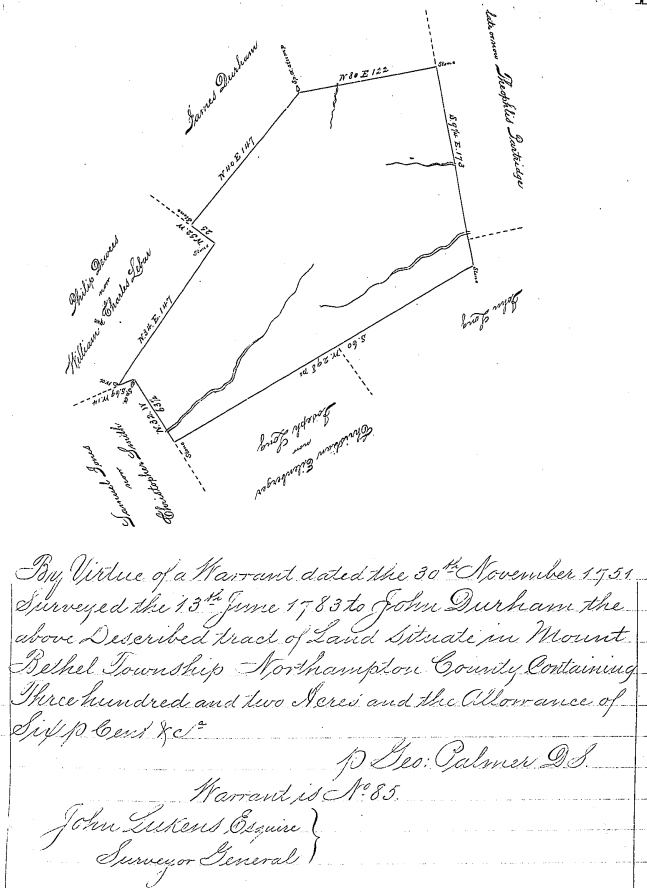 James Durham
N 80 E 122
Stone
late now Theophilis Partridge
S 9¾ E. 173
N 40 E 147
Stone
N 52 W
25
Stone
Philip Dewees
now
William & Charles Lebar
N 34 E. 147
S 69 W 14
N 32 W
63½
Stone
S. 60 W 298
Stone
John Long
Christian Eilenberger
now
Joseph Long
James Jones
now
Christopher Smith
By Virtue of a Warrant dated the 30th November 1751
Surveyed the 13th June 1783 to John Durham the
above Described tract of Land Situate in Mount
Bethel Township Northampton County Containing
Three hundred and two Acres and the Allowance of
Six p Cent &ca
p Geo: Palmer D.S.
Warrant is No 85.
John Lukens Esquire
Surveyor General